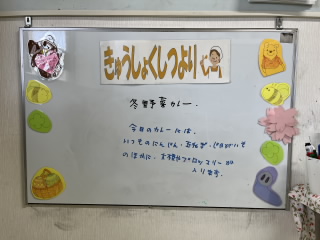 きゅうしょくしつより
冬野菜カレー.
今日のカレーには、
いつものにんじん・玉ねぎ・じゃがいも
のほかに、大根やブロッコリーが
入ります。